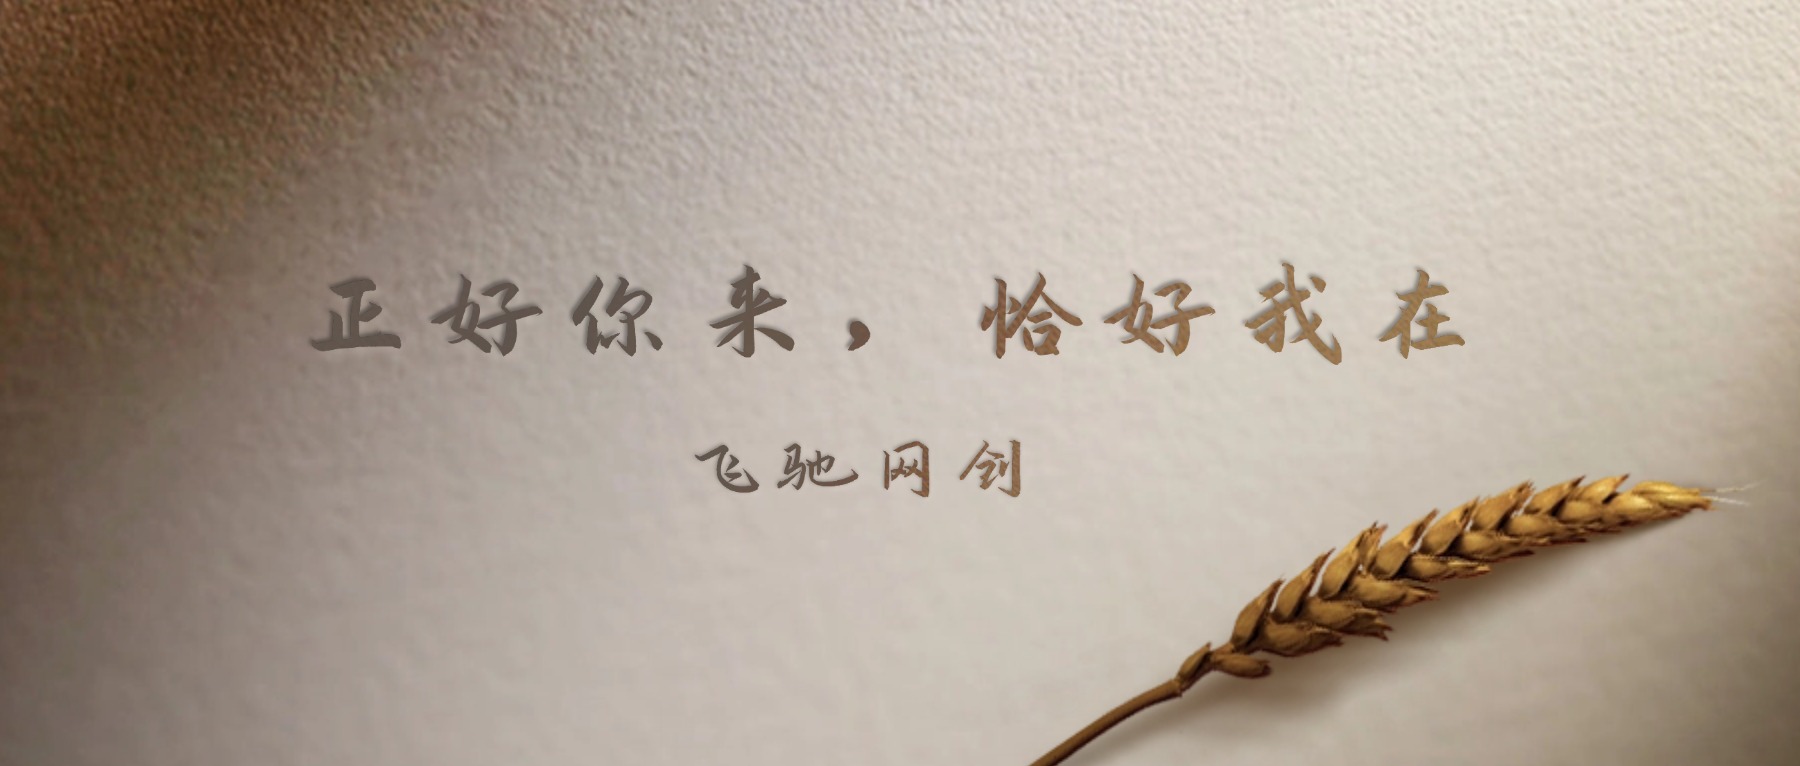 正好你来，恰好我在
飞驰网创